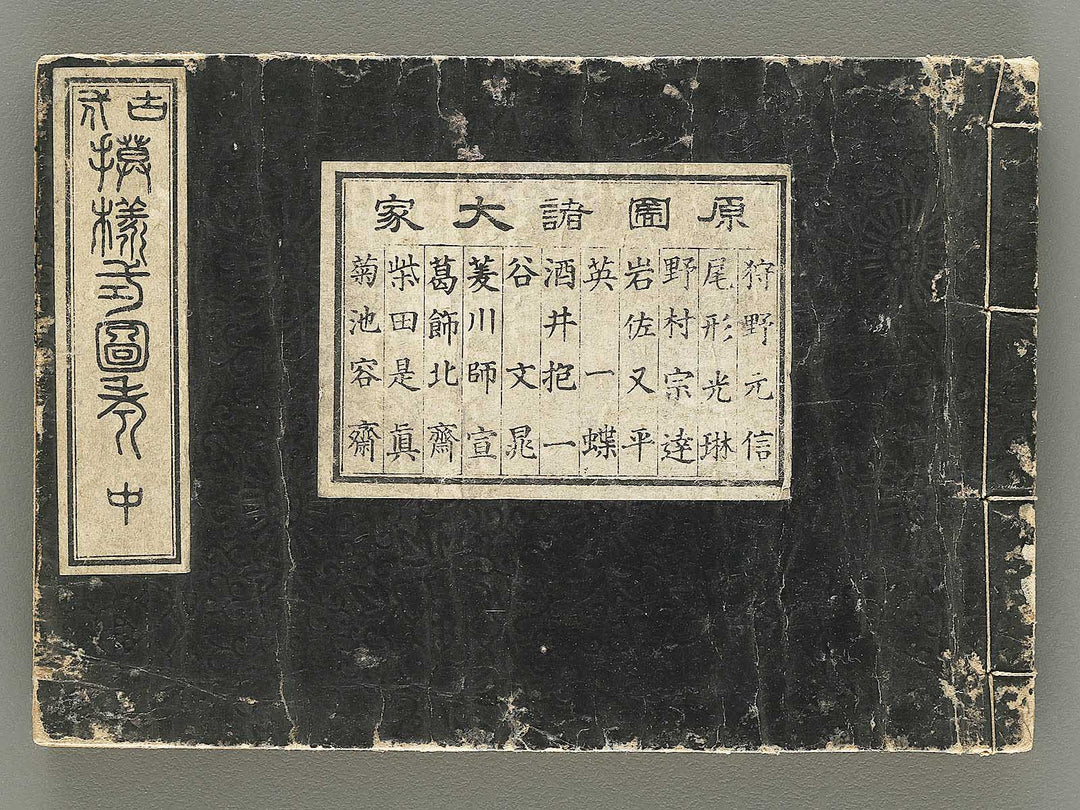 原圖諸大家
狩野元信
尾形光琳
野村宗達
岩佐又平
英一蝶
酒井抱一
谷文晁
菱川師宣
葛飾北齋
柴田是眞
菊池容齋
古代
摸樣式圖考 中